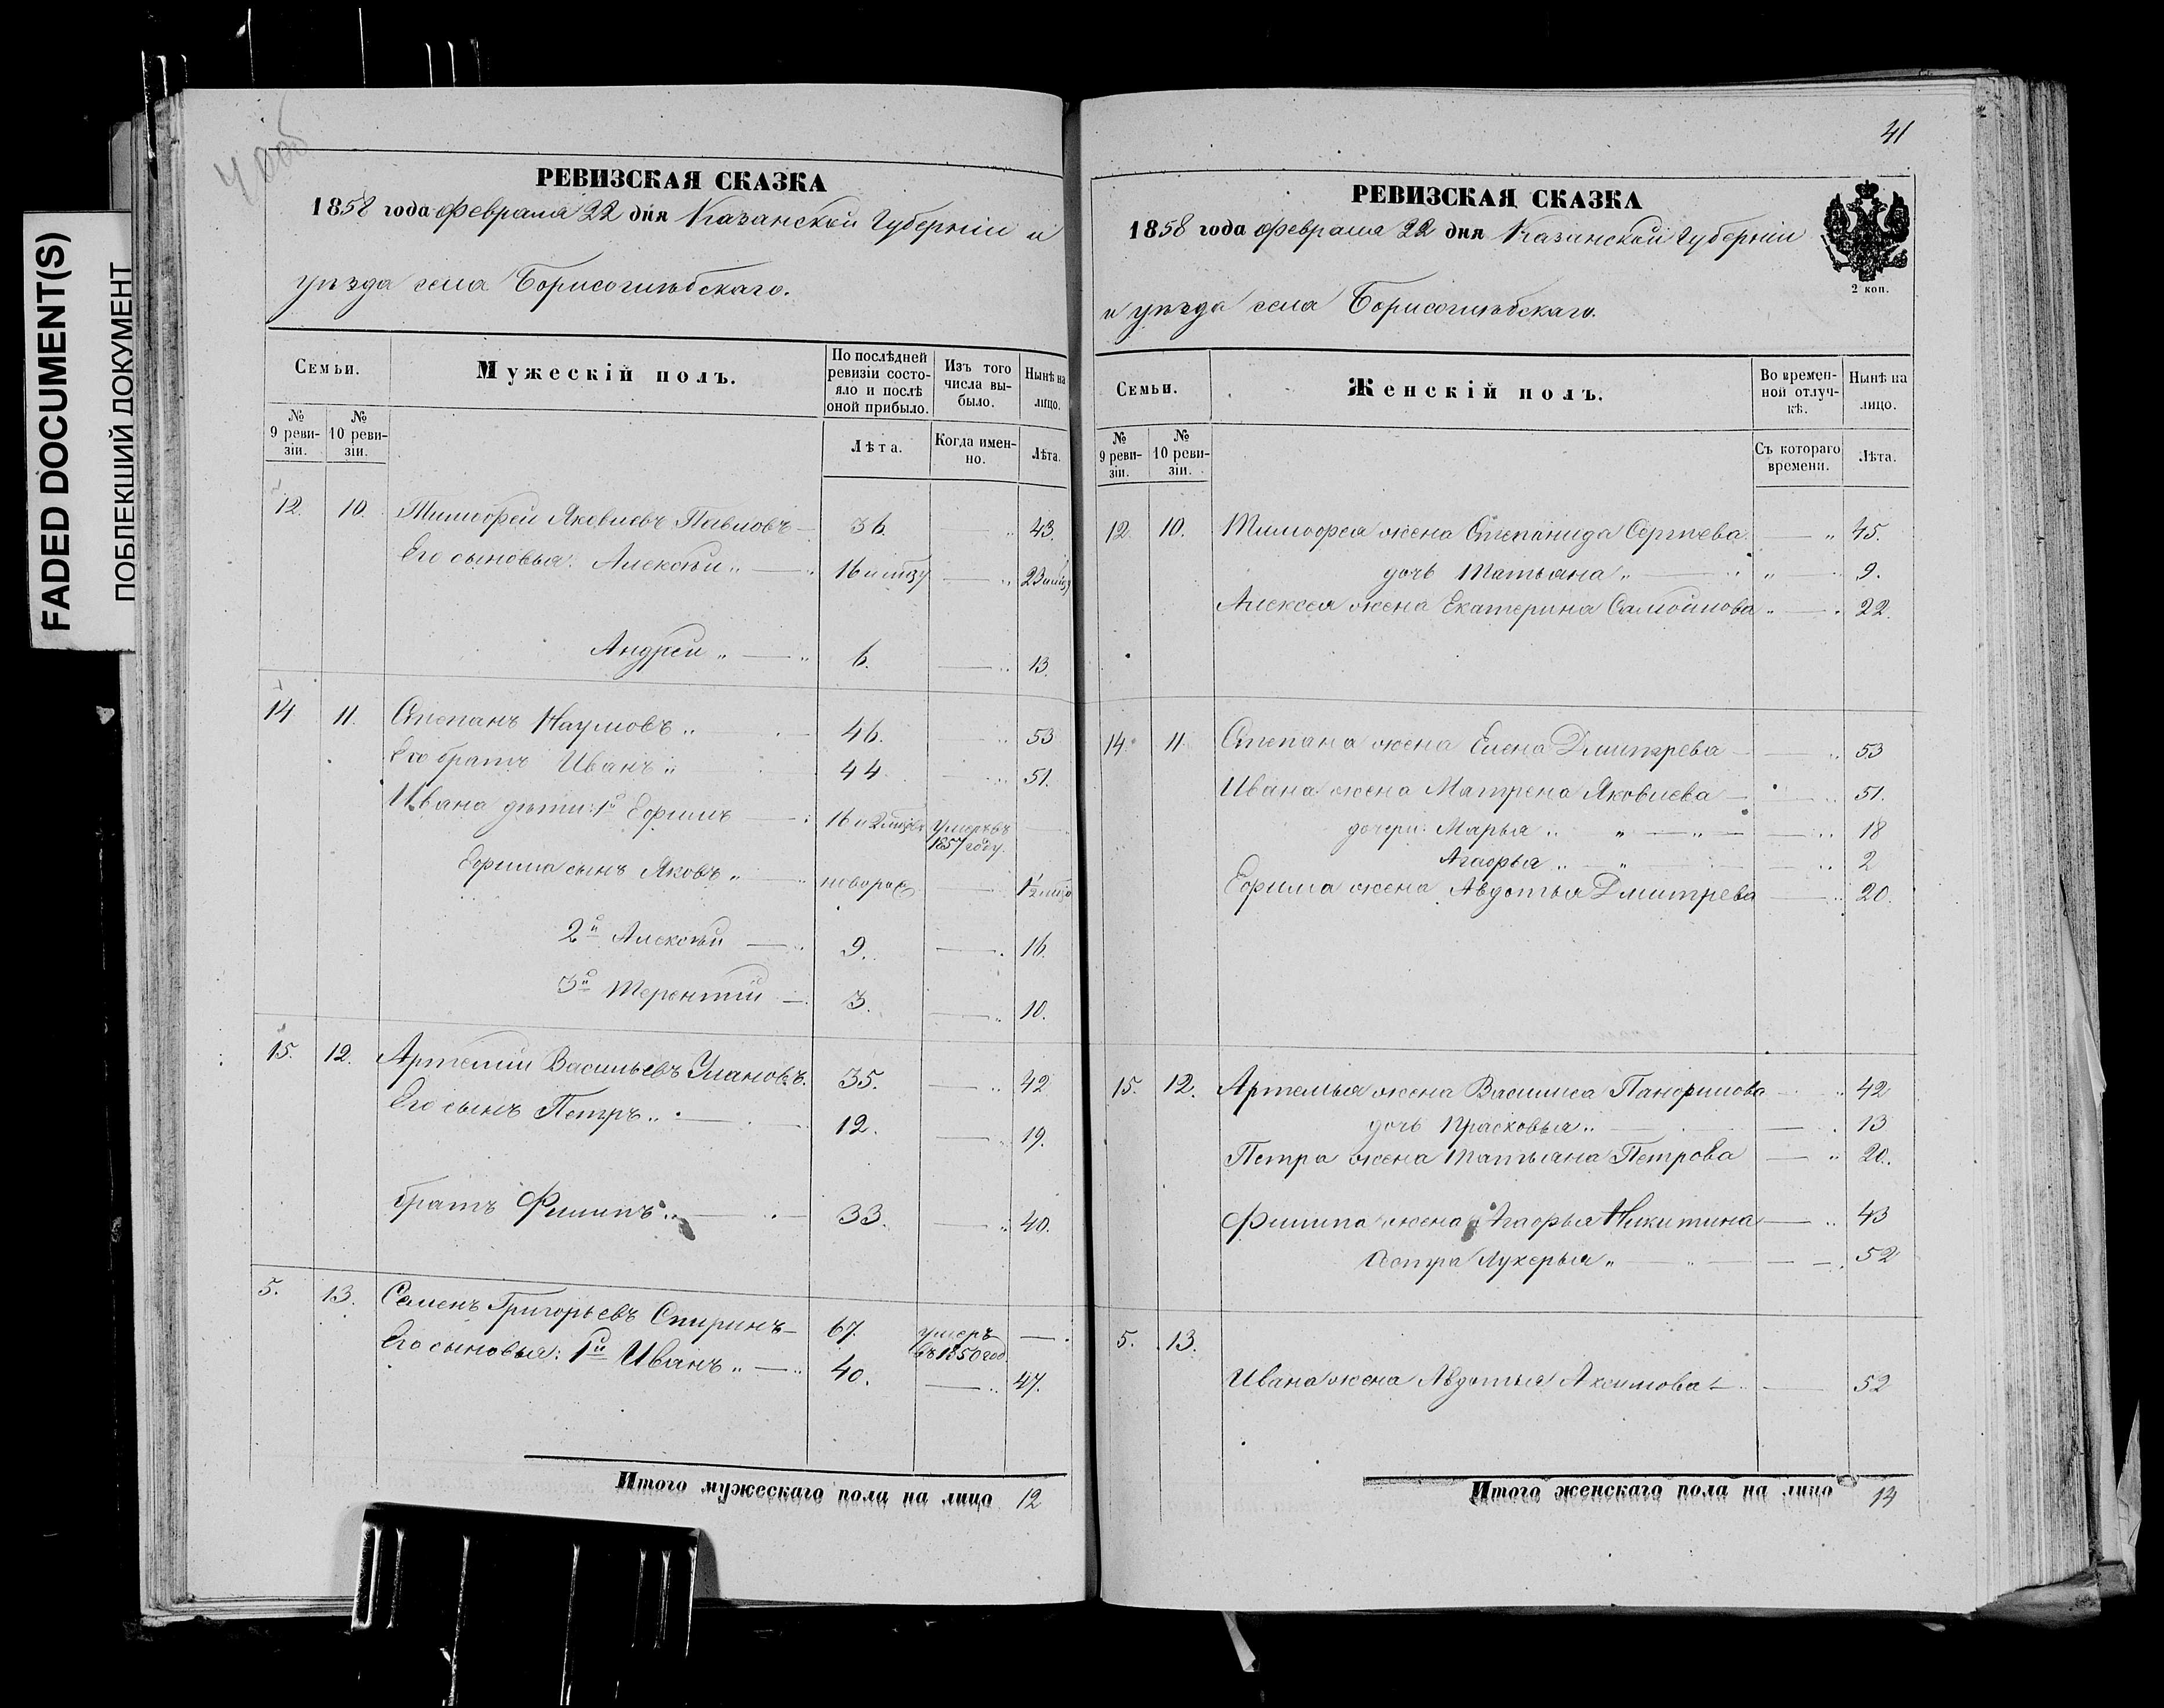 FADED DOCUMENT(S)
ПОБЛЕКШИЙ ДОКУМЕНТ
РЕВИЗСКАЯ СКАЗКА
1858 года февраля 22 дня Казанской Губерніи и
уѣзда села Борисоглѣбскаго.
Семьи.
Мужескій полъ.
По послѣдней ревизіи состояло и послѣ оной прибыло.
Изъ того числа выбыло.
Нынѣ на лицо.
№ 9 ревизіи.
№ 10 ревизіи.
Лѣта.
Когда именно.
Лѣта.
12. 10. Тимофей Яковлевъ Павловъ 36. 43.
Его сыновья: Алексѣй 16
Андрей 6. 13.
14 11. Степанъ Наумовъ 46. 53
Его братъ Иванъ 44 51.
Ивана дѣти: 1й Ефимъ 16 и Умеръ въ 1857 году.
Ефима сынъ Яковъ новорож
2й Алексѣй 9. 16.
3й Терентій 3. 10.
15. 12. Артемий Васильевъ Улановъ. 35. 42
Его сынъ Петръ 12. 19.
братъ Филипъ 33. 40.
5. 13. Семенъ Григорьевъ Спиринъ 67. умеръ въ 1850 год.
Его сыновья: 1й Иванъ 40. 47.
Итого мужескаго пола на лицо 12
41
РЕВИЗСКАЯ СКАЗКА
1858 года февраля 22 дня Казанской Губерніи
2 коп.
и уѣзда села Борисоглѣбскаго.
Семьи.
Женскій полъ.
Во временной отлучкѣ.
Нынѣ на лицо.
№ 9 ревизіи.
№ 10 ревизіи.
Съ котораго времени.
Лѣта.
12. 10. Тимофея жена Степанида Сергѣева 45.
дочь Татьяна 9.
Алексея жена Екатерина Самойлова 22.
14. 11 Степана жена Елена Дмитрева 53
Ивана жена Матрена Яковлева 51.
дочери: Марья 18
Агафья 2
Ефима жена Авдотья Дмитрева 20.
15. 12. Артемья жена Василиса Панфилова 42
дочь Прасковья 13
Петра жена Татьяна Петрова 20.
Филипа жена Агафья Никитина 43
Сестра Лукерья 52
5. 13.
Ивана жена Авдотья 52
Итого женскаго пола на лицо 14